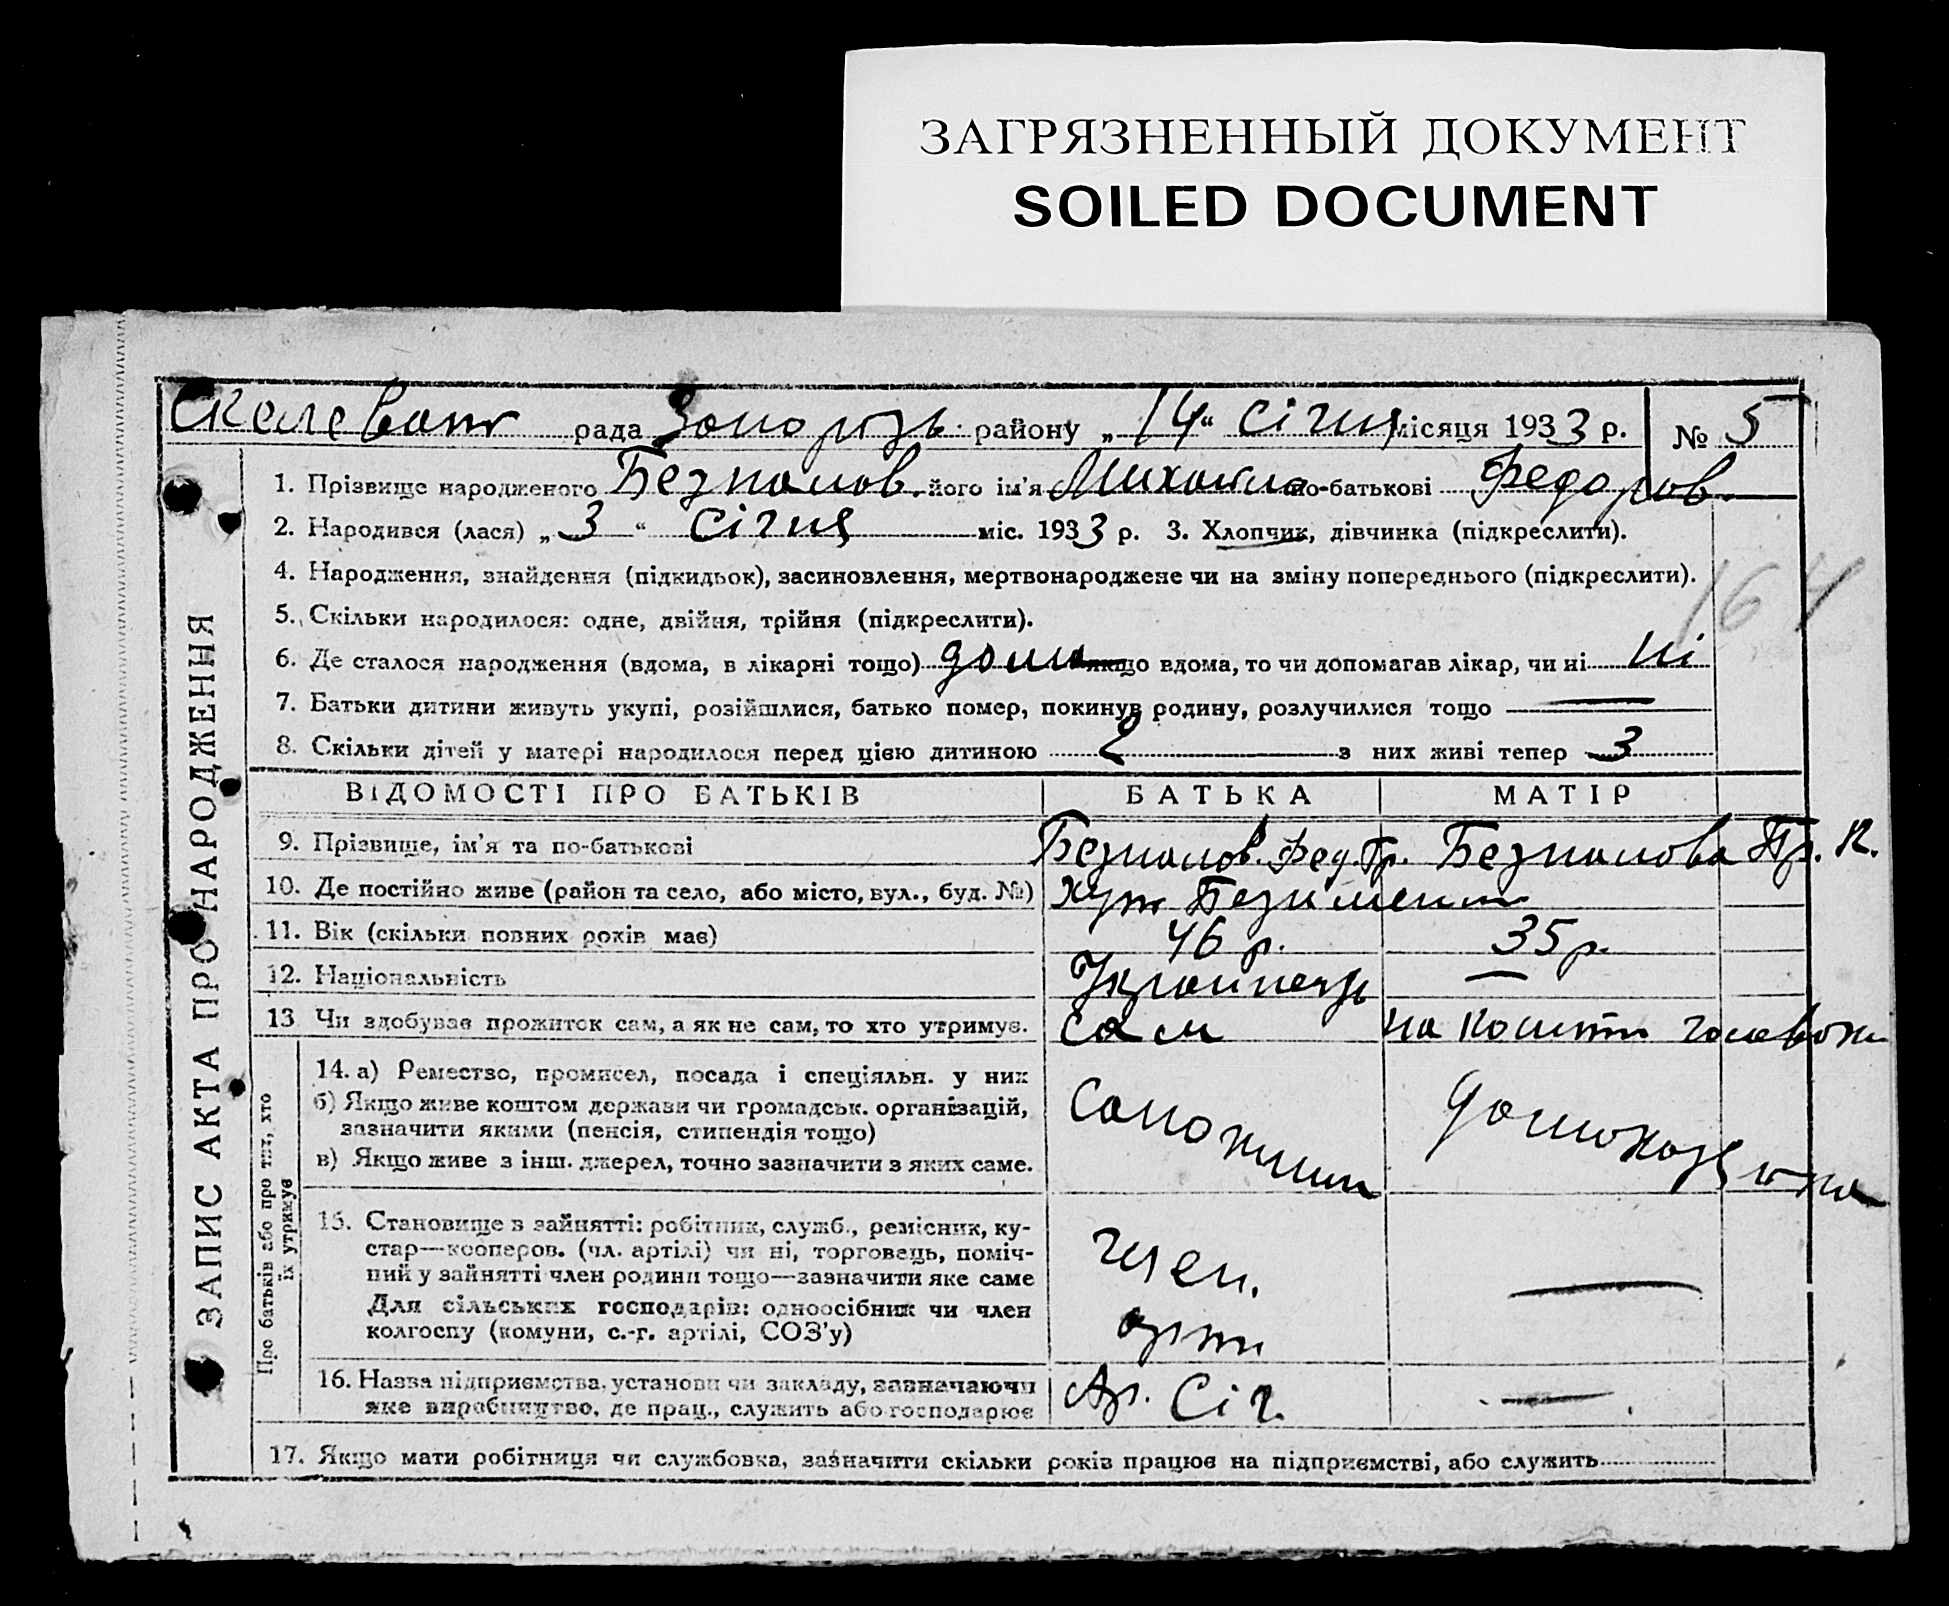 ЗАГРЯЗНЕННЫЙ ДОКУМЕНТ
SOILED DOCUMENT
Скелеват рада Запорізь. району „14“ січня місяця 1933 р. № 5
ЗАПИС АКТА ПРО НАРОДЖЕННЯ
1. Прізвище народженого Безпалов. його ім'я Михайло по-батькові Федоров.
2. Народився (лася) „3“ січня міс. 1933 р. 3. Хлопчик, дівчинка (підкреслити).
4. Народження, знайдення (підкидьок), засиновлення, мертвонароджене чи на зміну попереднього (підкреслити).
164
5. Скільки народилося: одне, двійня, трійня (підкреслити).
6. Де сталося народження (вдома, в лікарні тощо) дома якщо вдома, то чи допомагав лікар, чи ні ні
7. Батьки дитини живуть укупі, розійшлися, батько помер, покинув родину, розлучилися тощо —
8. Скільки дітей у матері народилося перед цією дитиною 2 з них живі тепер 3
ВІДОМОСТІ ПРО БАТЬКІВ БАТЬКА МАТІР
9. Прізвище, ім'я та по-батькові Безпалов. Фед. Гр. Безпалова Пр. К.
10. Де постійно живе (район та село, або місто, вул., буд. №) Хут
11. Вік (скільки повних років має) 46 р. 35 р.
12. Національність Українець —
13 Чи здобував прожиток сам, а як не сам, то хто утримує. сам на кошти
Про батьків або про тих, хто
їх утримує
14. а) Ремество, промисел, посада і спеціяльн. у них
б) Якщо живе коштом держави чи громадськ. організацій,
зазначити якими (пенсія, стипендія тощо)
в) Якщо живе з інш. джерел, точно зазначити з яких саме.
15. Становище в зайнятті: робітник, служб., ремісник, ку-
стар—кооперов. (чл. артілі) чи ні, торговець, поміч-
ний у зайнятті член родини тощо—зазначити яке саме
Для сільських господарів: одноосібник чи член
колгоспу (комуни, с.-г. артілі, СОЗ'у)
член.
арт.
—
16. Назва підприємства, установи чи закладу, зазначаючи
яке виробництво, де прац., служить або господарює
Ар. Січ. —
17. Якщо мати робітниця чи службовка, зазначити скільки років працює на підприємстві, або служить